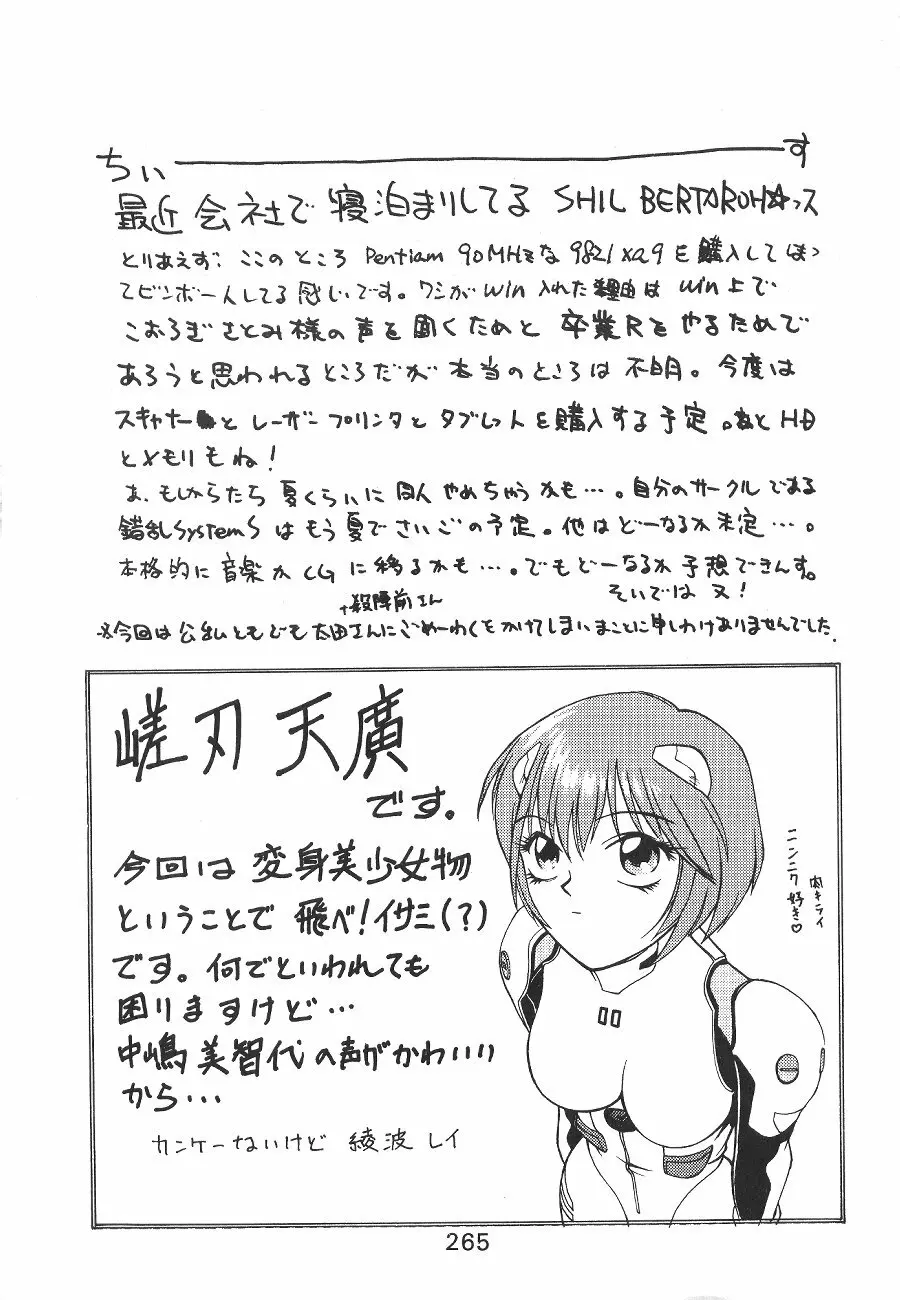 ちぃ――――――す
最近会社で寝泊まりしてる SHIL BERTAROH☆っス
とりあえず、ここのところ Pentiam 90MHzな 9821Xa9を購入してほっ
てビンボー人してる感じです。ワシがwin入れた理由はwin上で
こおろぎさとみ様の声を聞くためと卒業Rをやるためで
あろうと思われるところだが本当のところは不明。今度は
スキャナーとレーザープリンタとタブレットを購入する予定。あとHD
とメモリもね!
あ、もしかしたら夏くらいに同人やめちゃうかも…。自分のサークルである
錯乱SystemSはもう夏でさいごの予定。他はどーなるか未定…。
本格的に音楽かCGに移るかも…。でもどーなるか予想できんす。
そいでは又!
↑殺陣前さん
※今回は公私ともども太田さんにごめーわくをかけてしまいまことに申しわけありませんでした.
嵯刃天廣
です。
今回は変身美少女物
ということで飛べ!イサミ(?)
です。何でといわれても
困りますけど…
中嶋美智代の声がかわいい
から…
カンケーないけど 綾波レイ
ニンニク好き♡
肉キライ
00
265